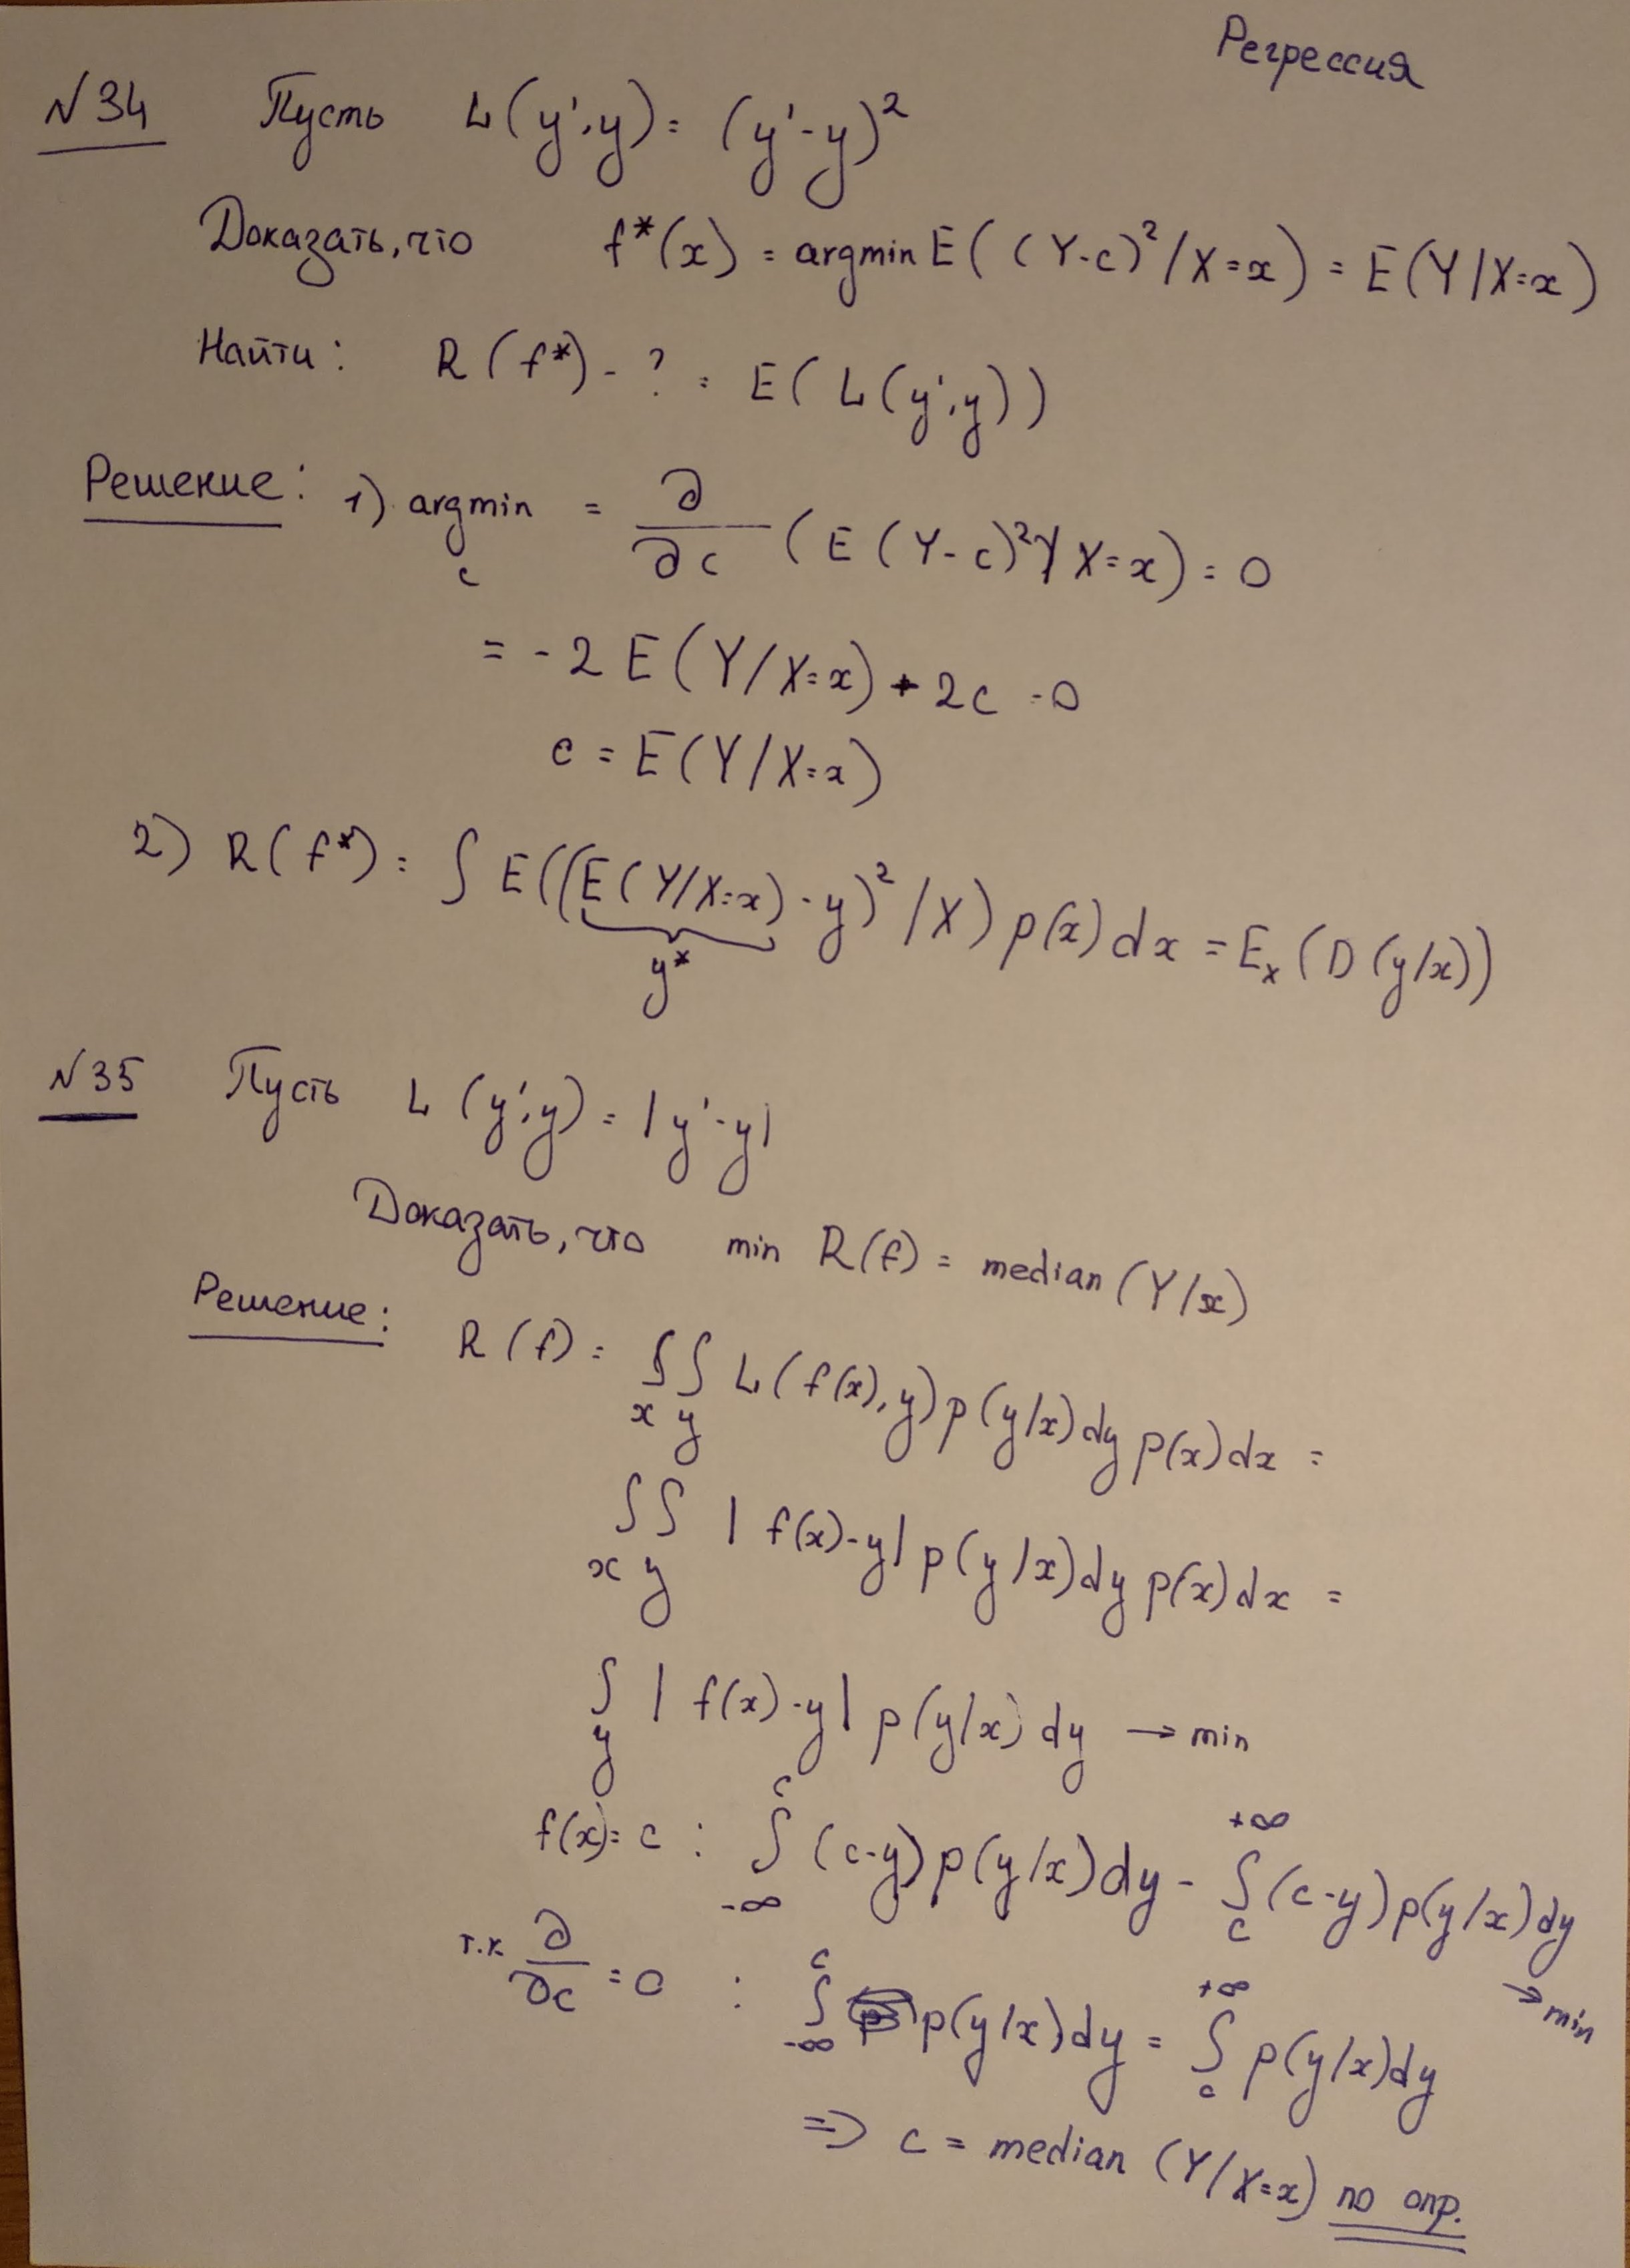 Регрессия
№34 Пусть L(y',y) = (y'-y)²
Доказать, что f*(x) = argmin E((Y-c)²/X=x) = E(Y/X=x)
Найти: R(f*) - ? = E(L(y',y))
Решение: 1) argmin_c = ∂/∂c (E(Y-c)²/X=x) = 0
= -2 E(Y/X=x) + 2c = 0
c = E(Y/X=x)
2) R(f*) = ∫ E((E(Y/X=x) - y)²/X) p(x) dx = Eₓ(D(y/x))
y*
№35 Пусть L(y',y) = |y'-y|
Доказать, что min R(f) = median (Y/x)
Решение: R(f) = ∫_x ∫_y L(f(x),y) p(y/x) dy p(x) dx =
∫_x ∫_y |f(x)-y| p(y/x) dy p(x) dx =
∫_y |f(x)-y| p(y/x) dy → min
f(x) = c : ∫_{-∞}^{c} (c-y) p(y/x) dy - ∫_{c}^{+∞} (c-y) p(y/x) dy → min
т.к ∂/∂c = 0 : ∫_{-∞}^{c} p(y/x) dy = ∫_{c}^{+∞} p(y/x) dy
=> c = median (Y/X=x) по опр.